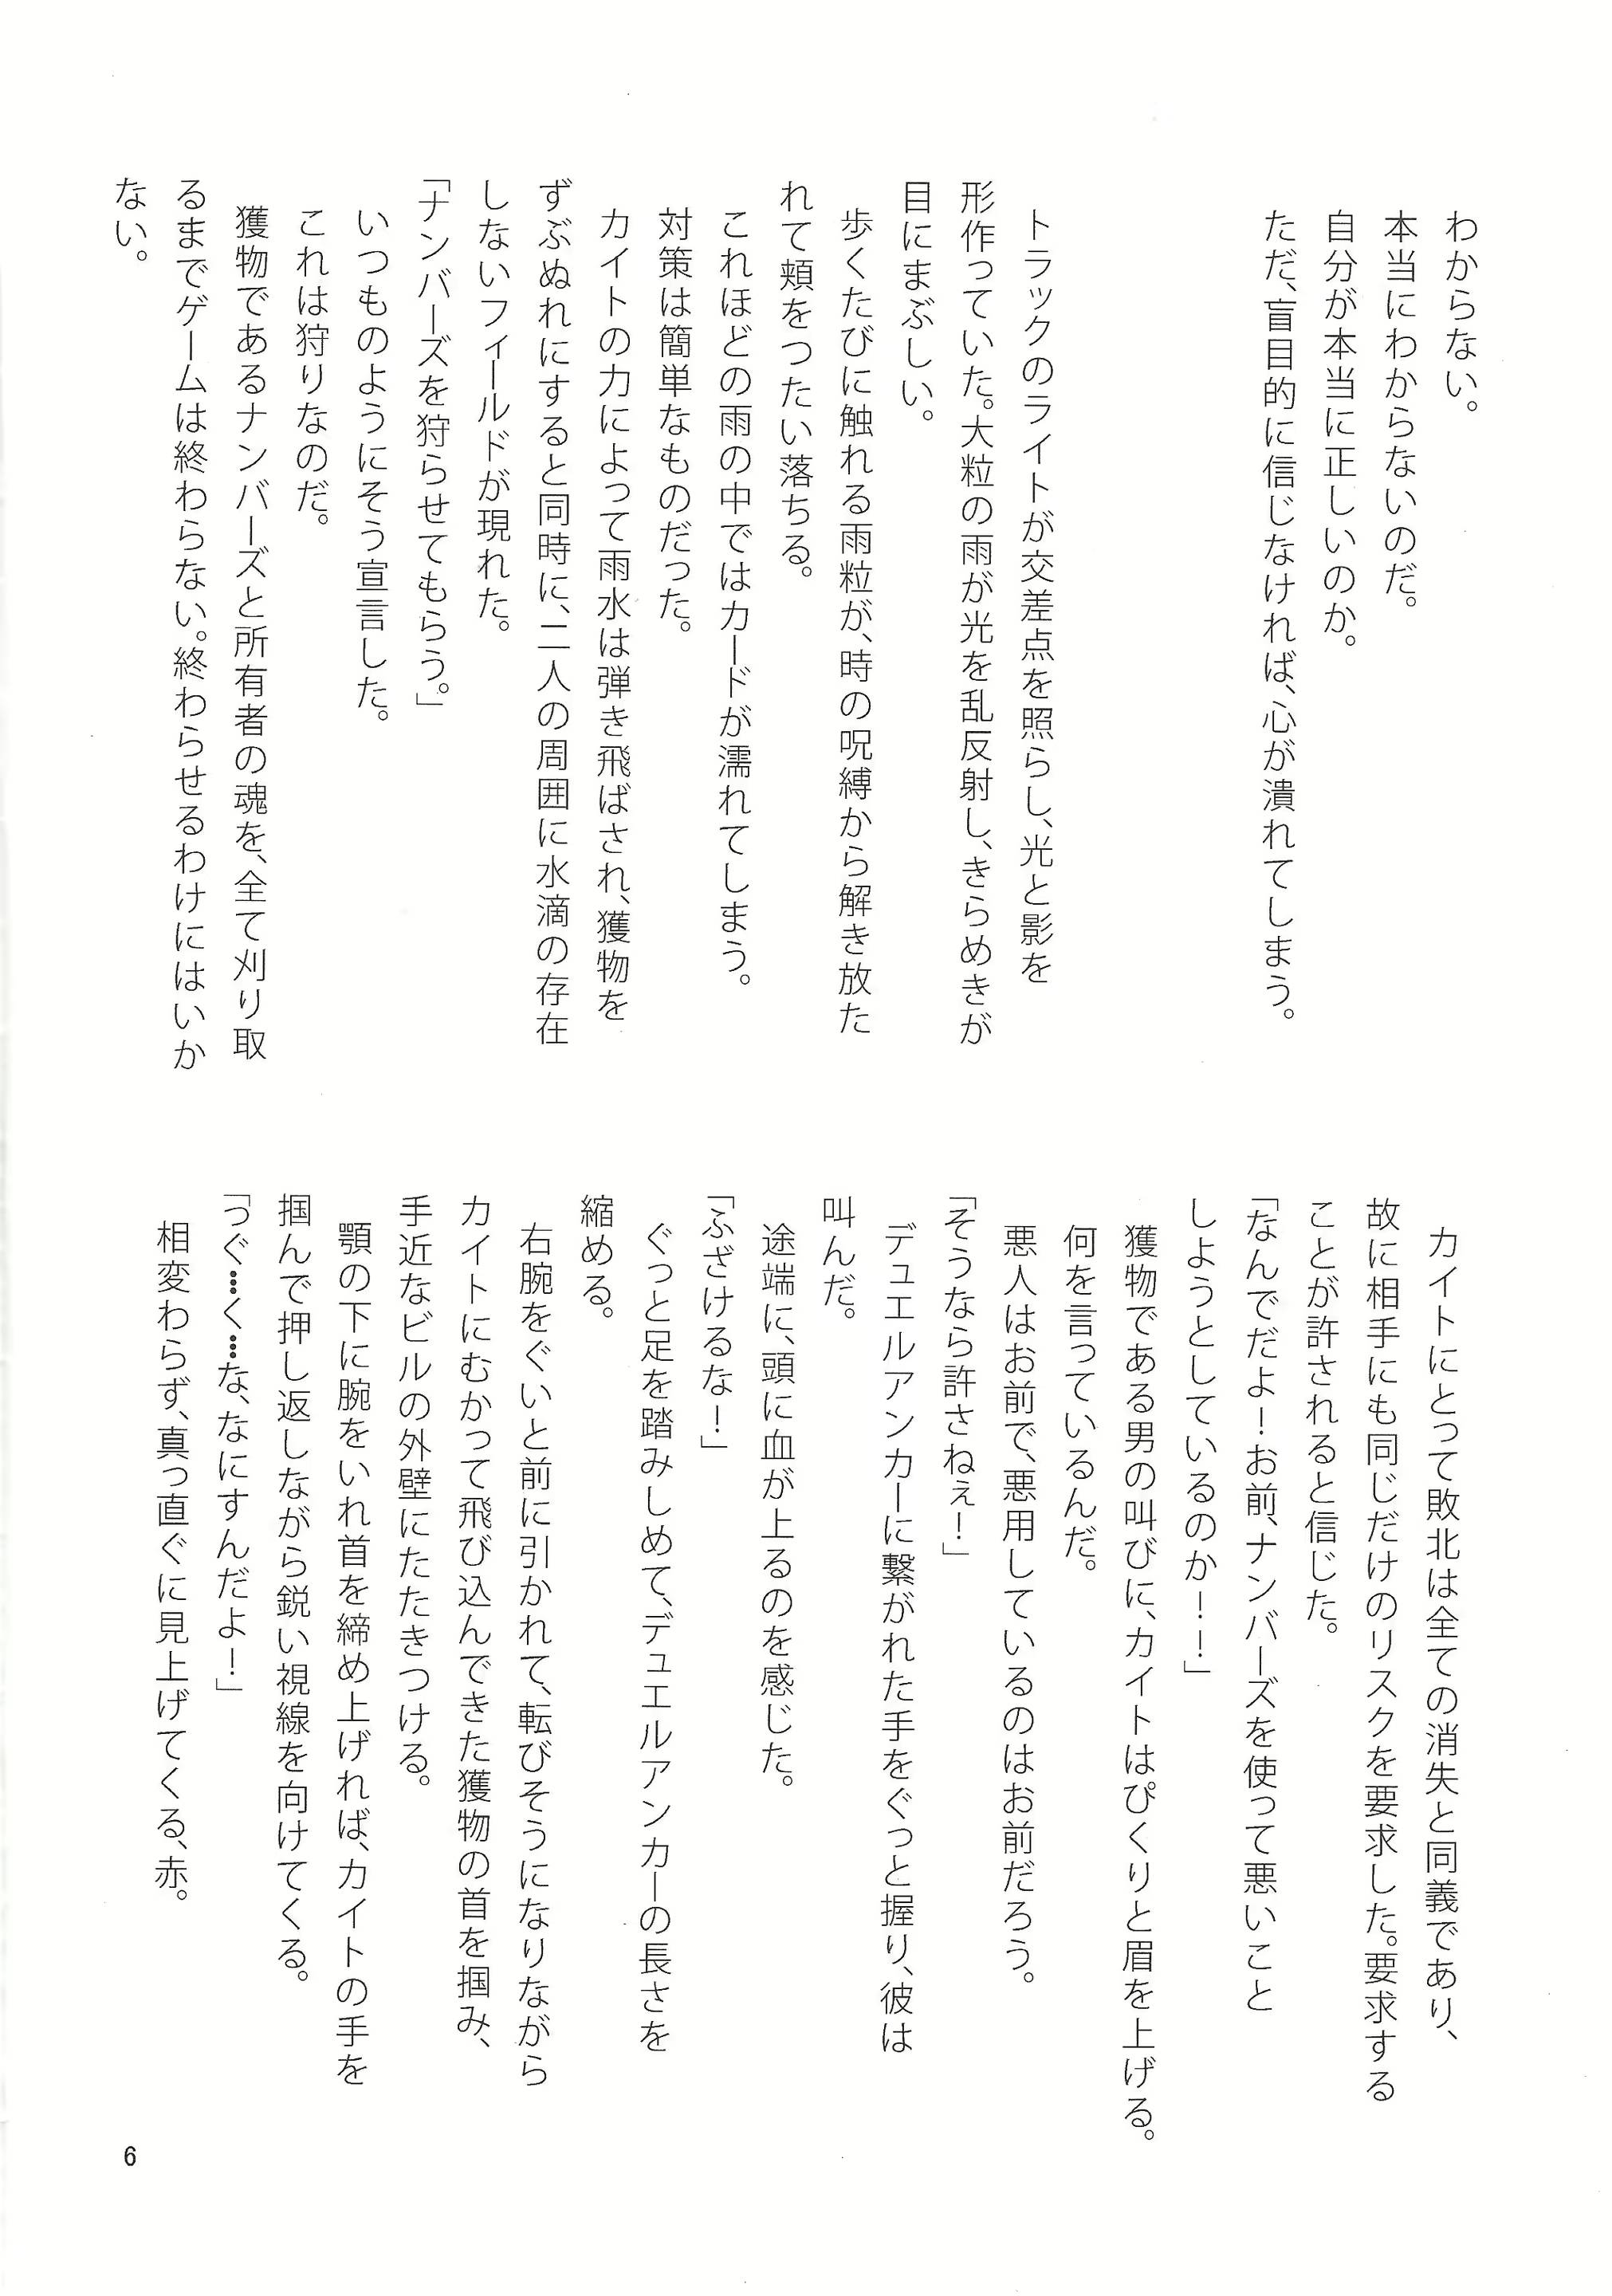 わからない。
本当にわからないのだ。
自分が本当に正しいのか。
ただ、盲目的に信じなければ、心が潰れてしまう。
トラックのライトが交差点を照らし、光と影を
形作っていた。大粒の雨が光を乱反射し、きらめきが
目にまぶしい。
歩くたびに触れる雨粒が、時の呪縛から解き放た
れて頬をつたい落ちる。
これほどの雨の中ではカードが濡れてしまう。
対策は簡単なものだった。
カイトの力によって雨水は弾き飛ばされ、獲物を
ずぶぬれにすると同時に、二人の周囲に水滴の存在
しないフィールドが現れた。
「ナンバーズを狩らせてもらう。」
いつものようにそう宣言した。
これは狩りなのだ。
獲物であるナンバーズと所有者の魂を、全て刈り取
るまでゲームは終わらない。終わらせるわけにはいか
ない。
カイトにとって敗北は全ての消失と同義であり、
故に相手にも同じだけのリスクを要求した。要求する
ことが許されると信じた。
「なんでだよ！お前、ナンバーズを使って悪いこと
しようとしているのか！！」
獲物である男の叫びに、カイトはぴくりと眉を上げる。
何を言っているんだ。
悪人はお前で、悪用しているのはお前だろう。
「そうなら許さねぇ！」
デュエルアンカーに繋がれた手をぐっと握り、彼は
叫んだ。
途端に、頭に血が上るのを感じた。
「ふざけるな！」
ぐっと足を踏みしめて、デュエルアンカーの長さを
縮める。
右腕をぐいと前に引かれて、転びそうになりながら
カイトにむかって飛び込んできた獲物の首を掴み、
手近なビルの外壁にたたきつける。
顎の下に腕をいれ首を締め上げれば、カイトの手を
掴んで押し返しながら鋭い視線を向けてくる。
「つぐ…く…な、なにすんだよ！」
相変わらず、真っ直ぐに見上げてくる、赤。
6